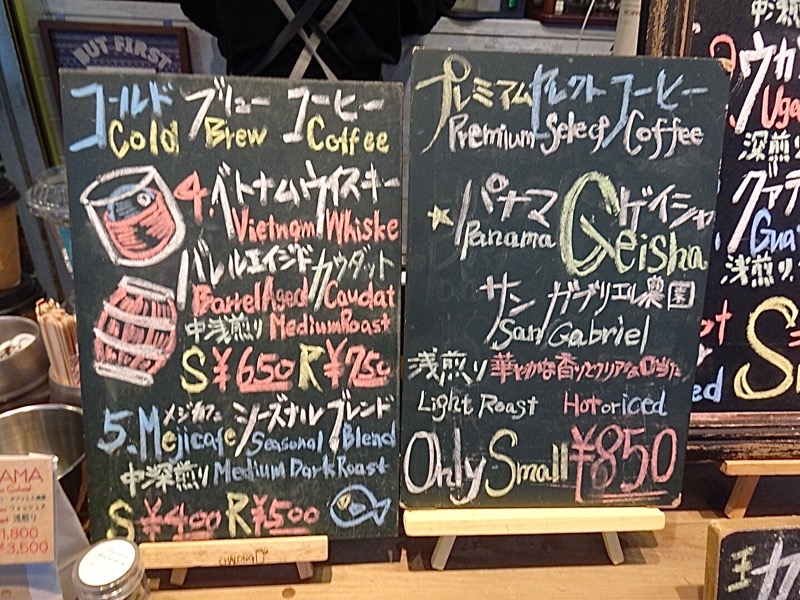 BUT FIRST
コールド ブリュー コーヒー
Cold Brew Coffee
4.ベトナムウイスキー
Vietnam Whiske
バレルエイジド カウダット
Barrel Aged Caudat
中浅煎り Medium Roast
S ¥650 R ¥750
メジカフェ シーズナル ブレンド
5. Mejicafe Seasonal Blend
中深煎り Medium Dark Roast
S ¥400 R ¥500
CHALONG
プレミアムセレクトコーヒー
Premium Select Coffee
★パナマ ゲイシャ
Panama Geisha
サン ガブリエル農園
San Gabriel
浅煎り 華やかな香りとクリアな口当た
Light Roast Hot or iced
Only Small ¥850
ウカ
Uga
深煎り
グァテ
Gua
浅煎り
S
AMA
浅煎り
1,800
¥3,500